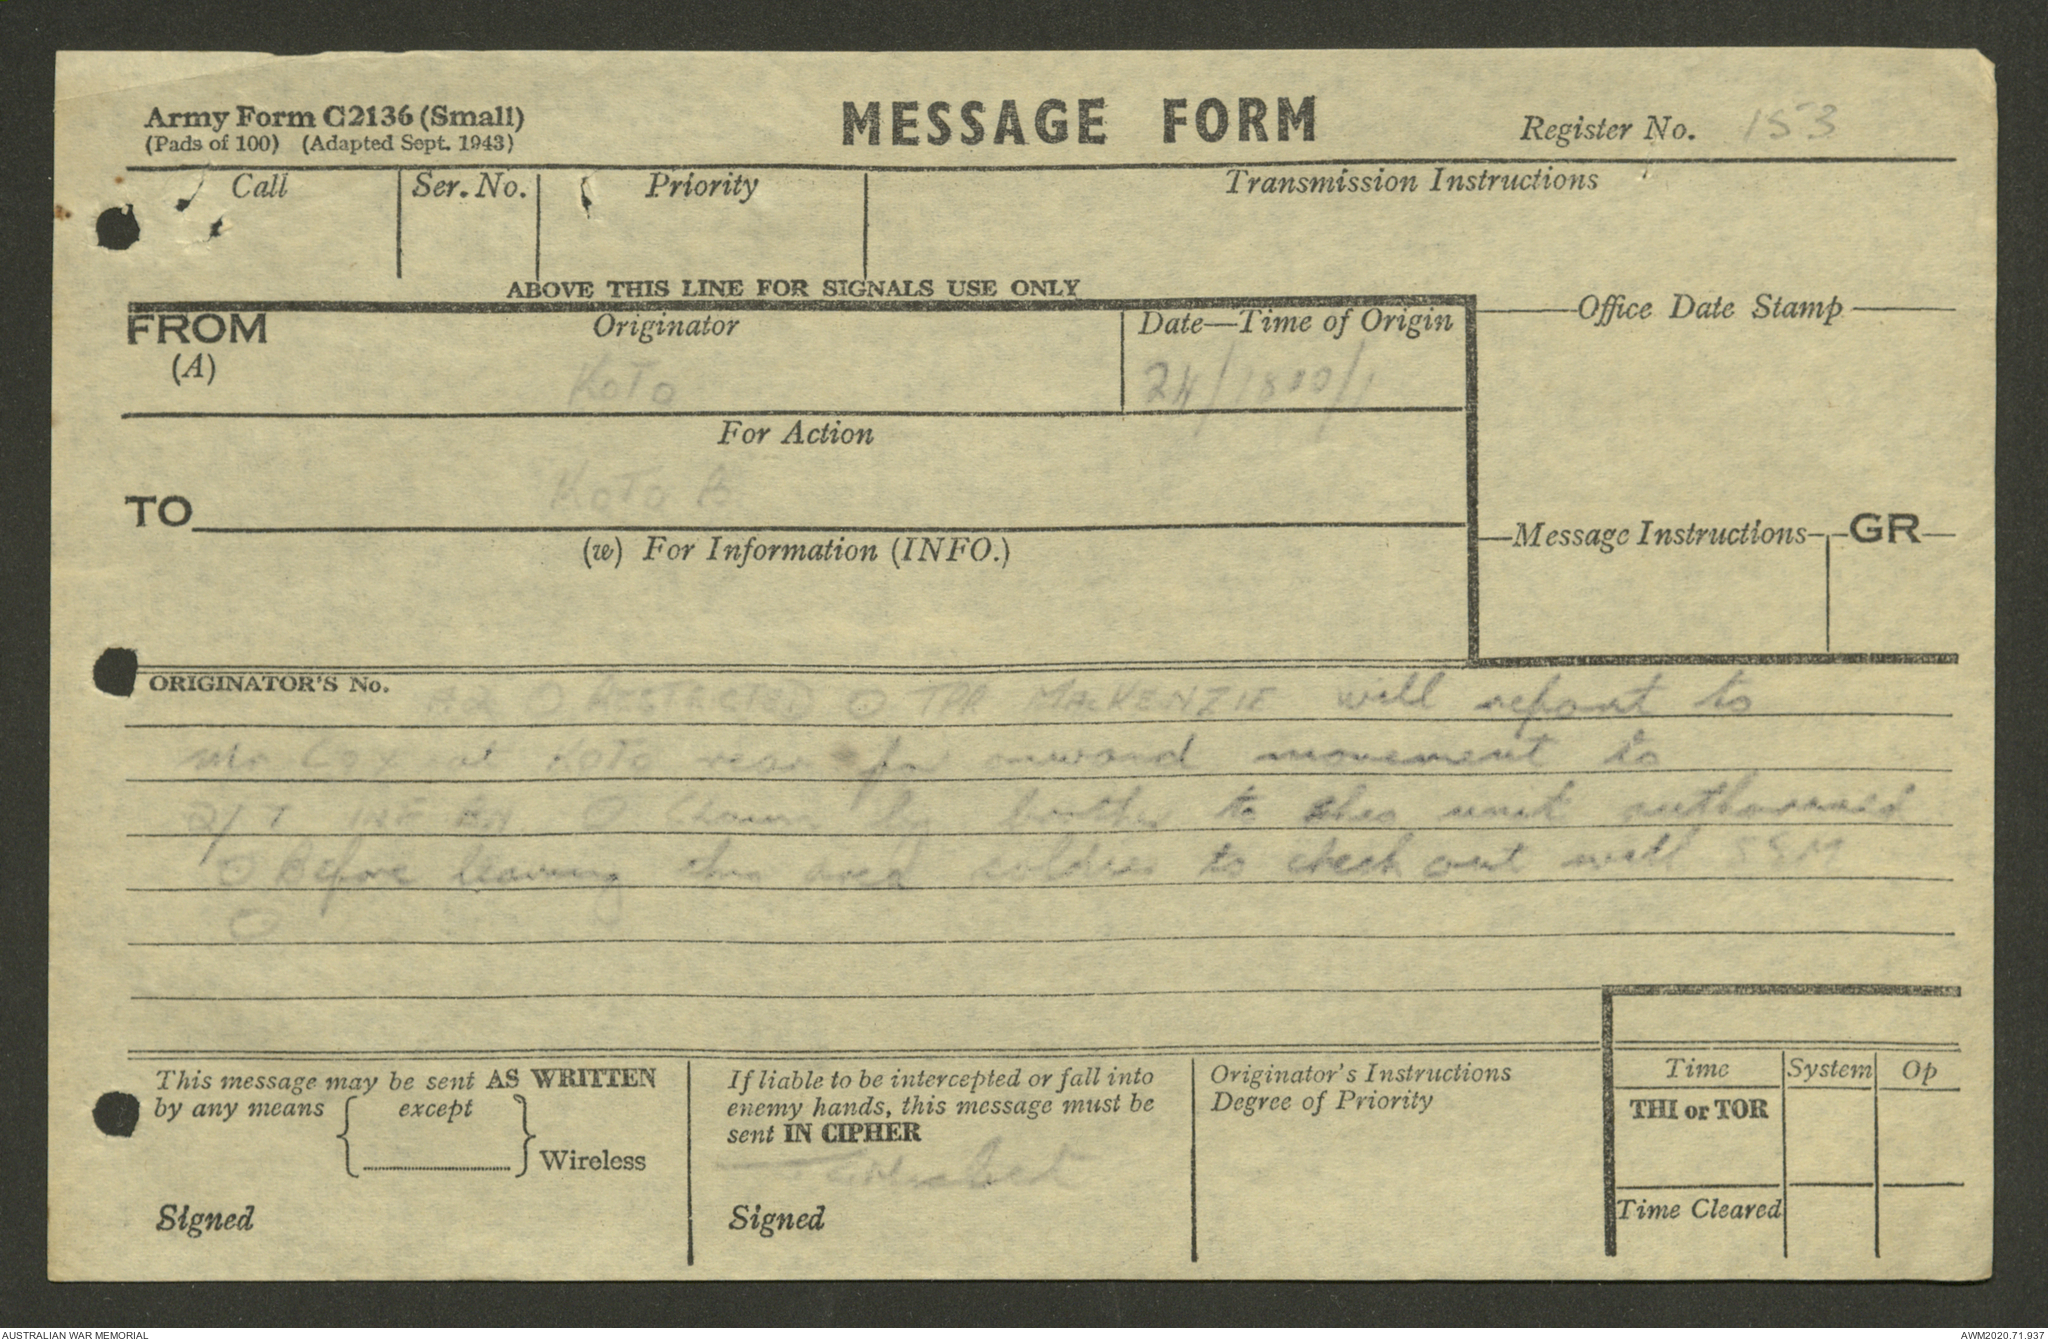 Army Form C2136 (Small)
(Pads of 100) (Adapted Sept. 1943)
MESSAGE FORM
Register No. 153
Call
Ser. No.
Priority
Transmission Instructions
ABOVE THIS LINE FOR SIGNALS USE ONLY
FROM
(A)
Originator
KOTO
Date—Time of Origin
24/1800/1
Office Date Stamp
For Action
KOTO B
TO
(w) For Information (INFO.)
Message Instructions
GR
ORIGINATOR'S No.
A2 O RESTRICTED O TPR MACKENZIE will report to
Mr Cox at KOTO rear for onward movement to
2/7 INF BN O Claim by brother to this unit authorised
O Before leaving this area soldier to check out with SSM
O
This message may be sent AS WRITTEN
by any means except
Wireless
Signed
If liable to be intercepted or fall into
enemy hands, this message must be
sent IN CIPHER
Signed
Originator's Instructions
Degree of Priority
Time
System
Op
THI or TOR
Time Cleared
AUSTRALIAN WAR MEMORIAL
AWM2020.71.937